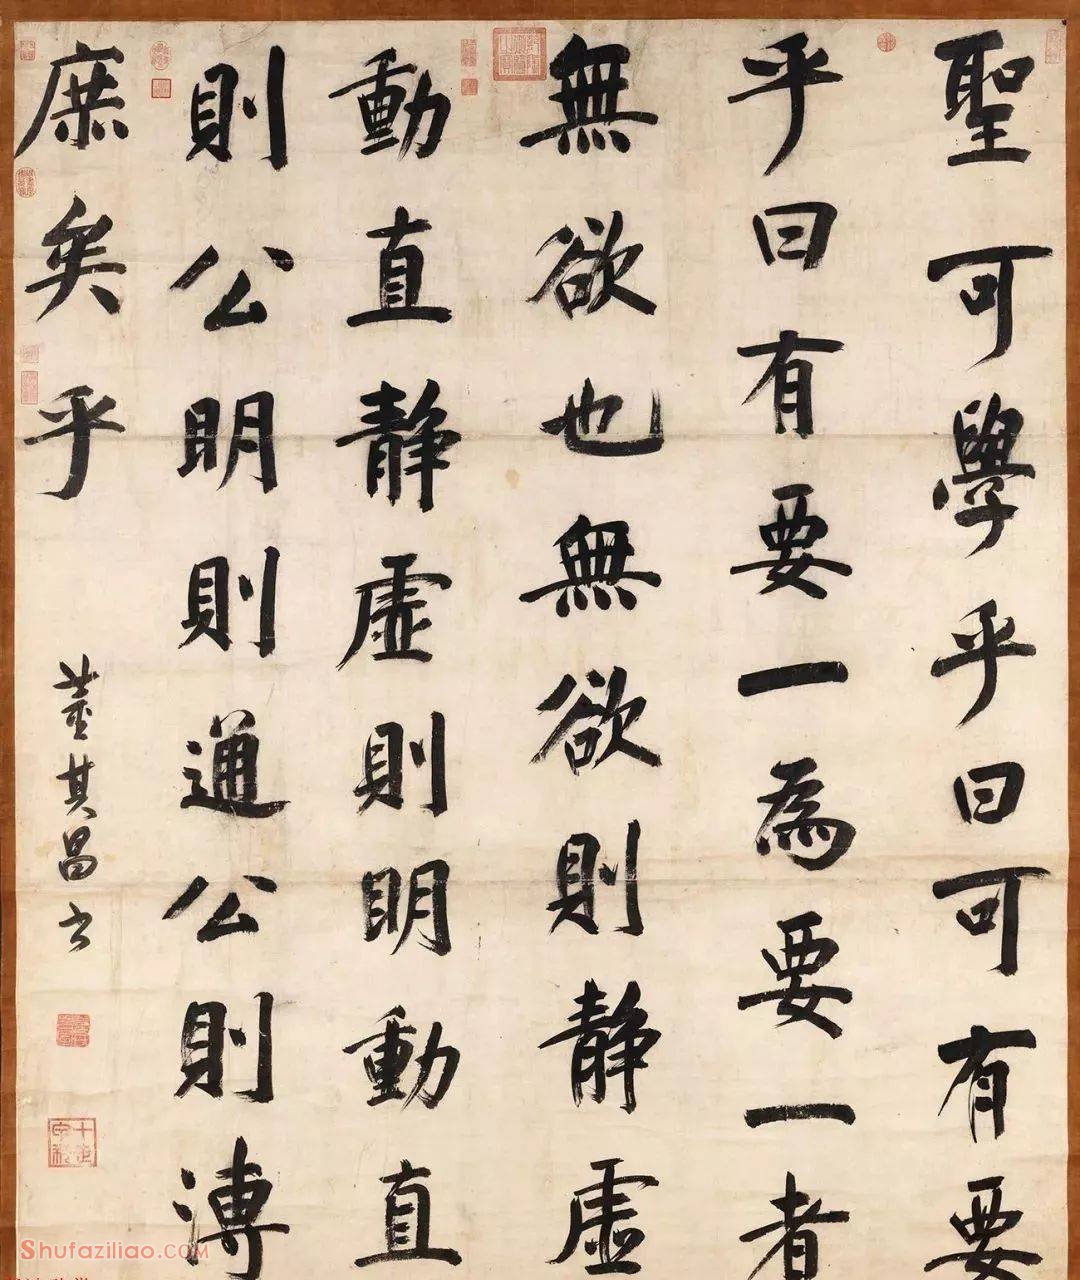 聖可學乎曰可有要
乎曰有要一為要一者
無欲也無欲則静虛
動直静虛則明動直
則公明則通公則溥
庶矣乎
董其昌書
Shufaziliao.COM